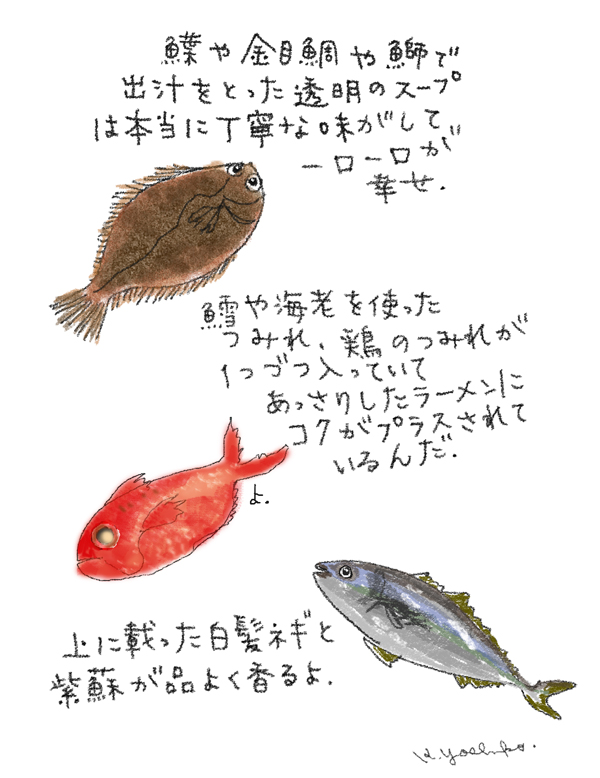 鰈や金目鯛や鰤で
出汁をとった透明のスープ
は本当に丁寧な味がして
一口一口が
幸せ.
鱈や海老を使った
つみれ、鶏のつみれが
1つづつ入っていて
あっさりしたラーメンに
コクがプラスされて
いるんだ.
よ.
上に載った白髪ネギと
紫蘇が品よく香るよ.